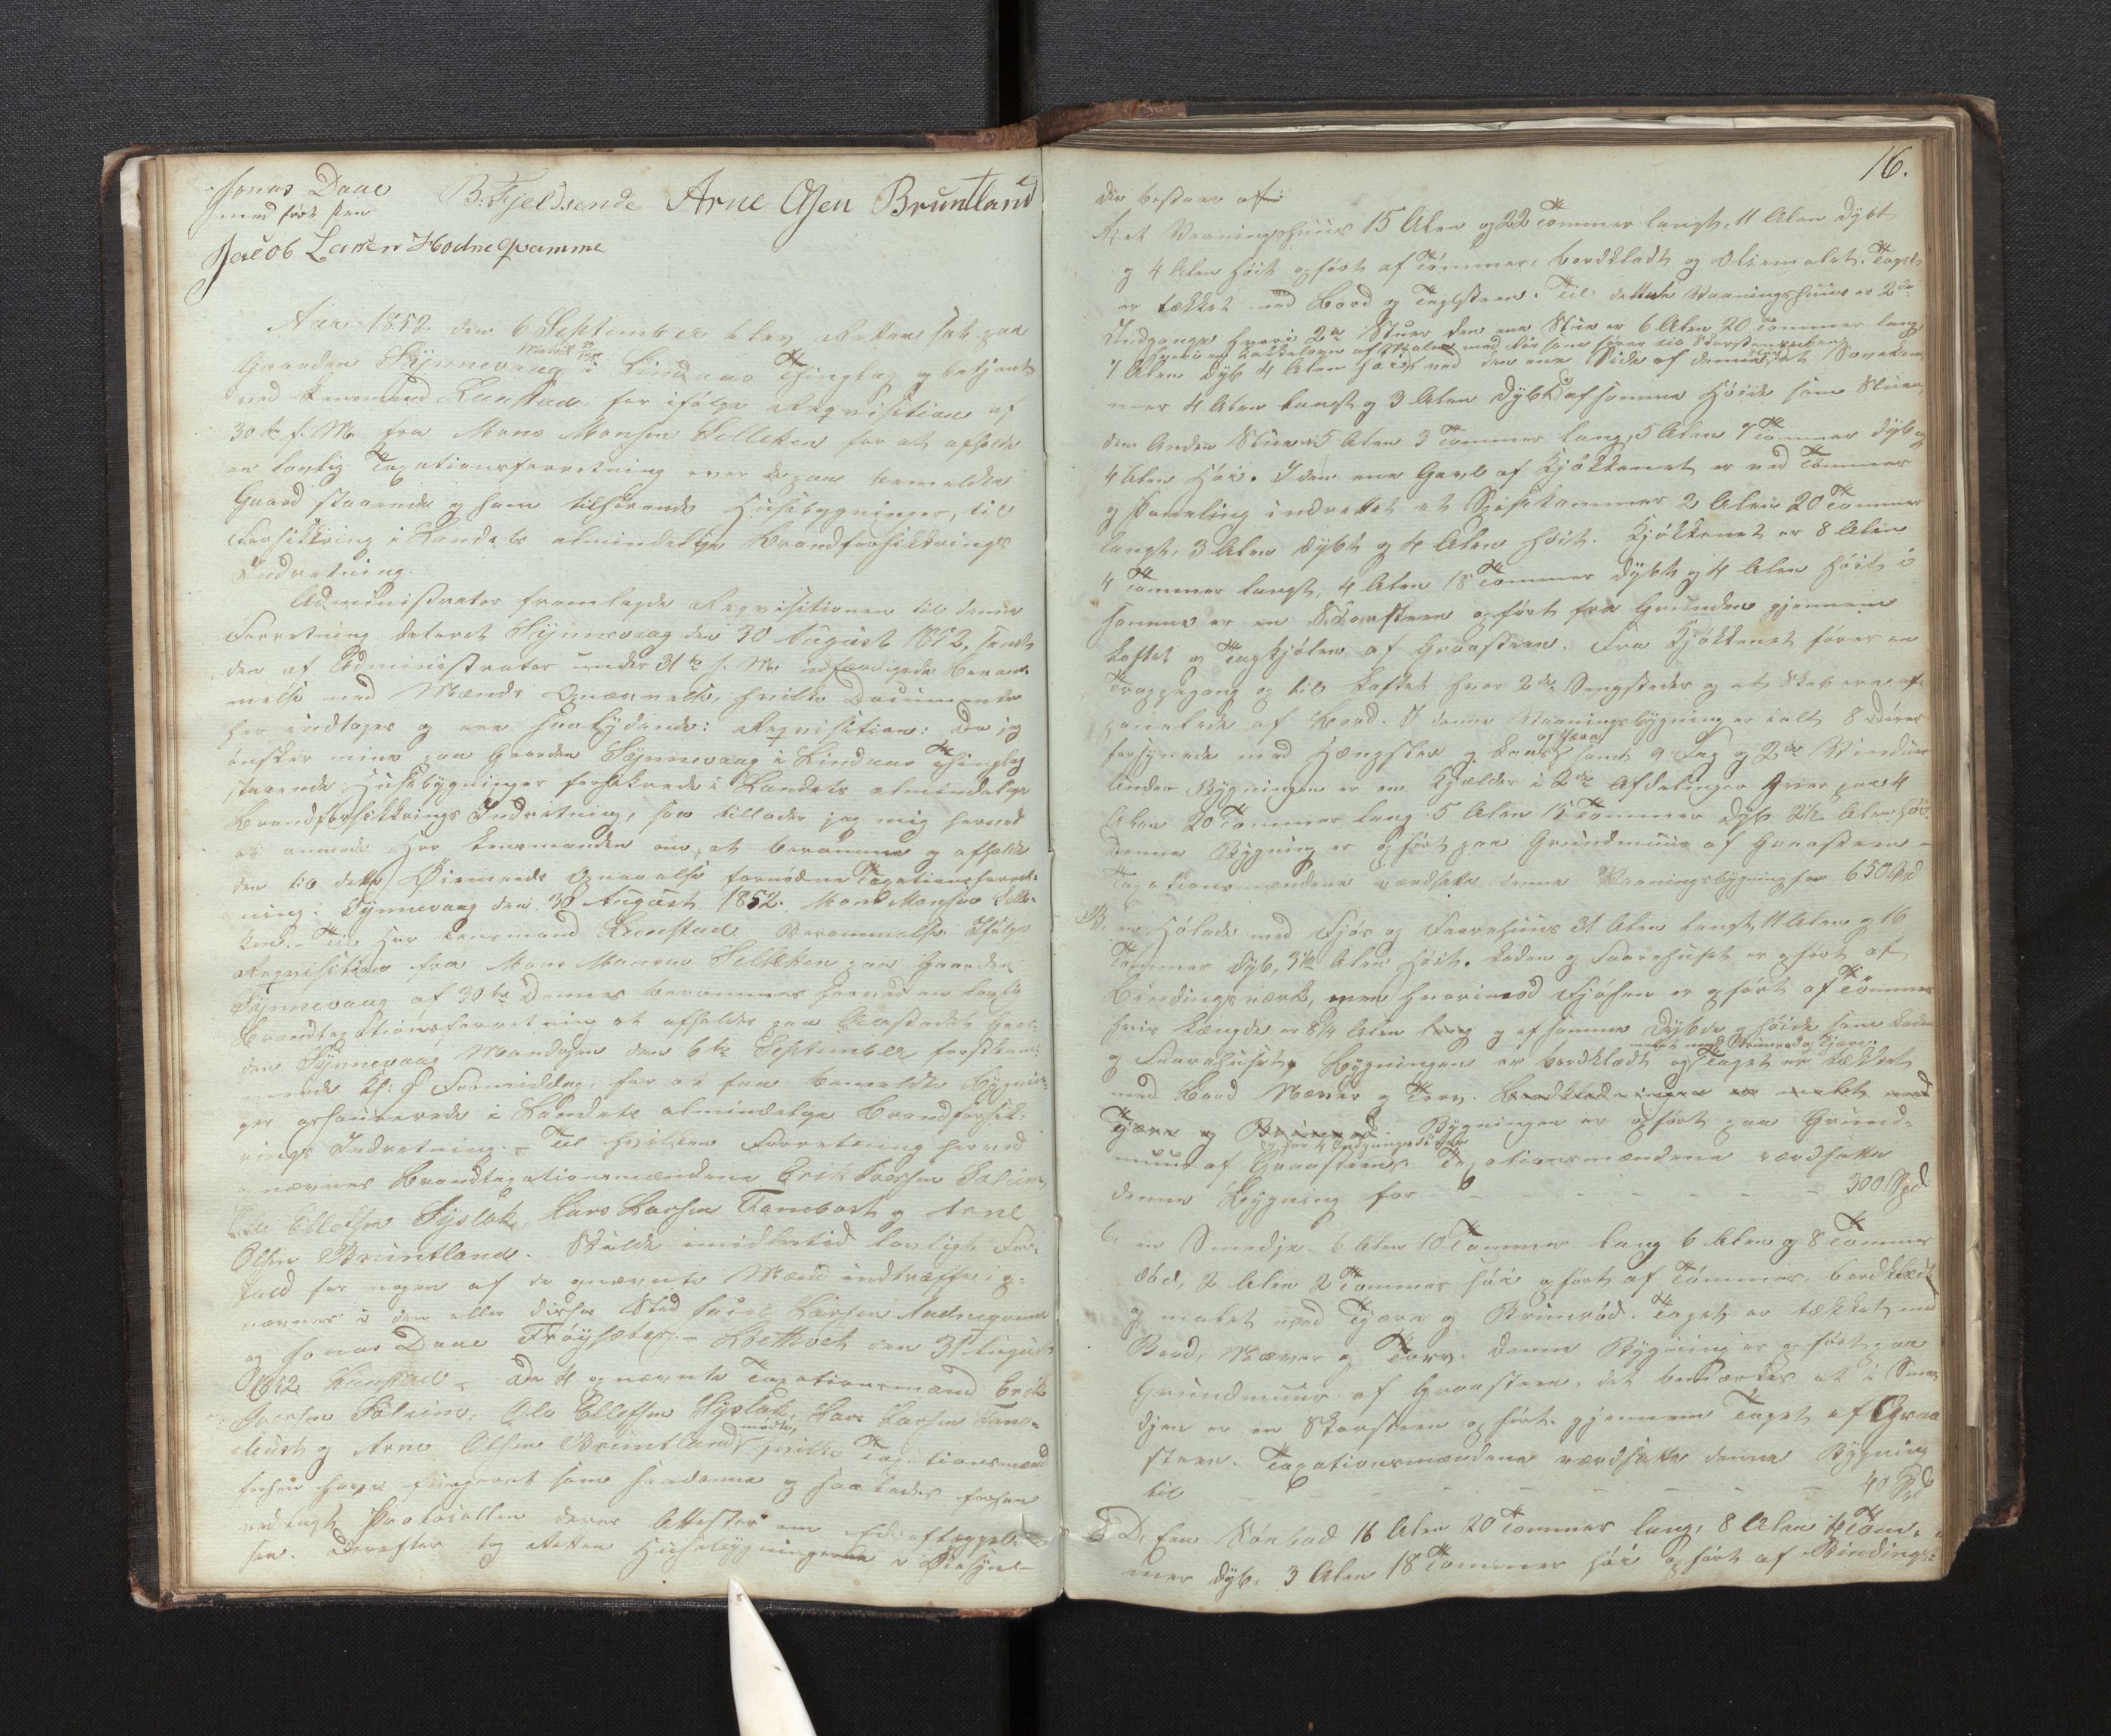 Jonas Daae B: Fjeldsende Arne Olsen Bruntland
med ført Pen
Jacob Larsen Hodneqvamme
Aar 1852 den 6 September blev Retten sat paa
Gaarden Synnevaag i Lindaas Thinglag og betjent
ved Lensmand Lunstad for ifølge Reqvisition af
30te f. M. fra Mons Monsen Sellevken for at afholde
en lovlig Taxationsforretning over de paa bemeldte
Gaard staaende og ham tilhørende Huusebygninger, til
Forsikkring i Landets almindelige Brandforsikkrings
Indretning.
Administrator fremlagde Reqvisitionen til denne
Forretning dateret Synnevaag den 30 August 1852, samt
den af Administrator under 31te s. M. udfærdigede Beram-
melse med Mænds Opnævnelse, hvilke Documenter
her indtages og ere saalydende: Reqvisition: Da jeg
ønsker mine paa Gaarden Synnevaag i Lindaas Thinglag
staaende Huusebygninger forsikrede i Landets almindelige
Brandforsikkrings Indretning, saa tillader jeg mig herved
at anmode Herr Lensmanden om, at beramme og afholde
den til dette Øiemeds Opnaaelse fornødne Taxationsforret-
ning. Synnevaag den 30 August 1852. Mons Monsen Selle-
ken. - Til Herr Lensmand Lunstad Berammelse: Ifølge
Reqvisition fra Mons Monsen Selleken paa Gaarden
Synnevaag af 30te Dennes berammes herved en lovlig
Brandtaxationsforretning at afholdes paa Aastedet Gaar-
den Synnevaag Mandagen den 6te September førstkom-
mende Kl: 9 Formiddag, for at faa bemeldte Bygnin-
ger assurerede i Landets almindelige Brandforsik-
rings Indretning. - Til hvilken Forretning herved
opnævnes Brandtaxationsmændene Erik Iversen Soleim,
Ole Ellefsen Hyslak, Lars Larsen og Arne
Olsen Bruntland. Skulde imidlertid lovligt For-
fald for nogen af de opnævnte Mænd indtræffe, op-
nævnes i den eller disses Sted Jacob Larsen Hodneqvam
og Jonas Daae Frøyset. - den 31 August
1852 Lunstad - De 4 opnævnte Taxationsmænd Erik
Iversen Soleim, Ole Ellefsen Hyslak, Lars Larsen
og Arne Olsen Bruntland mødte, hvilke Taxationsmænd
forhen have fungeret som saadanne og saaledes forhen
vedlagt Protocollen deres Attester om Eds aflæggel-
sen. Derefter tog Retten Huusebygningerne i Øiesyn
16.
der bestaar af:
A, et Vaaningshuus 15 Alen og 22 Tommer langt, 11 Alen dybt
og 4 Alen høit opført af Tømmer, bordklædt og oliemalet. Taget
er tækket med Bord og Taglsteen. Til dette Vaaningshuus er 2de
Indgange hvori 2de Stuer den ene Stue er 6 Alen 20 Tommer lang,
hvori en Kakkelovn af med Rør som fører til Skorstenspiben
7 Alen dyb 4 Alen høi ved den ene Side af denne et Sovekam-
mer 4 Alen langt og 3 Alen dybt af samme Høide som Stuen,
den Anden Stue er 5 Alen 3 Tommer lang, 5 Alen 7 Tommer dyb og
4 Alen høi. I den ene Gavl af Kjøkkenet er ved Tømmer
og Paneling indrettet et Spisekammer 2 Alen 20 Tommer
langt, 3 Alen dybt og 4 Alen høit. Kjøkkenet er 8 Alen
4 Tommer langt, 4 Alen 18 Tommer dybt og 4 Alen høit i
samme er en Skorsteen opført fra Grunden gjennem
Loftet og Tagkjølen af Graasteen. Fra Kjøkkenet fører en
Trappegang op til Loftet hvor 2de Sengsteder og et Skab ere af-
panelede af Bord. I denne Vaaningsbygning er ialt 8 Døre
forsynede med Hængsler og Laase af Jern, samt 9 Fag og 2de Vinduer
Under Bygningen er en Kjelder i 2de Afdelinger hver paa 4
Alen 20 Tommer lang 5 Alen 15 Tommer dyb 2 1/2 Alen høi.
Denne Bygning er opført paa Grundmuur af Graasteen -
Taxationsmændene værdsatte denne Vaaningsbygning for 650 Spd
B, en Hølade med Fjøs og Faarehuus 31 Alen langt, 11 Alen og 16
Tommer dyb, 3 1/2 Alen høit. Laden og Faarehuset er opført af
Bindingsværk, men hvorimod Fjøsen er opført af Tømmer
hvis Længde er 8 1/4 Alen lang og af samme Dybde og Høide som Laden
og Faarehuset. Bygningen er bordklædt malet med Bruunrød og Tjære og Taget er tækket
med Bord Næver og Torv. Bordklædningen er malet med
Tjære og Bruunrød. Bygningen er opført paa Grund-
muur af Graasteen og har 4 Indgangsdøre. Taxationsmændene værdsatte
denne Bygning for - - - - - - 300 Spd
C, en Smedje 6 Alen 10 Tommer lang 6 Alen og 8 Tommer
dyb, 2 Alen 2 Tommer høi opført af Tømmer, bordklædt
og malet med Tjære og Bruunrød. Taget er tækket med
Bord, Næver og Torv. Denne Bygning er opført paa
Grundmuur af Graasteen. Det bemærkes at i Sme-
djen er en Skorsteen opført gjennem Taget af Graa
steen. Taxationsmændene værdsatte denne Bygning
til - - - - - - 40 Spd
D, Een 16 Alen 20 Tommer lang, 8 Alen 4 Tom-
mer dyb. 3 Alen 18 Tommer høi opført af Bindings-